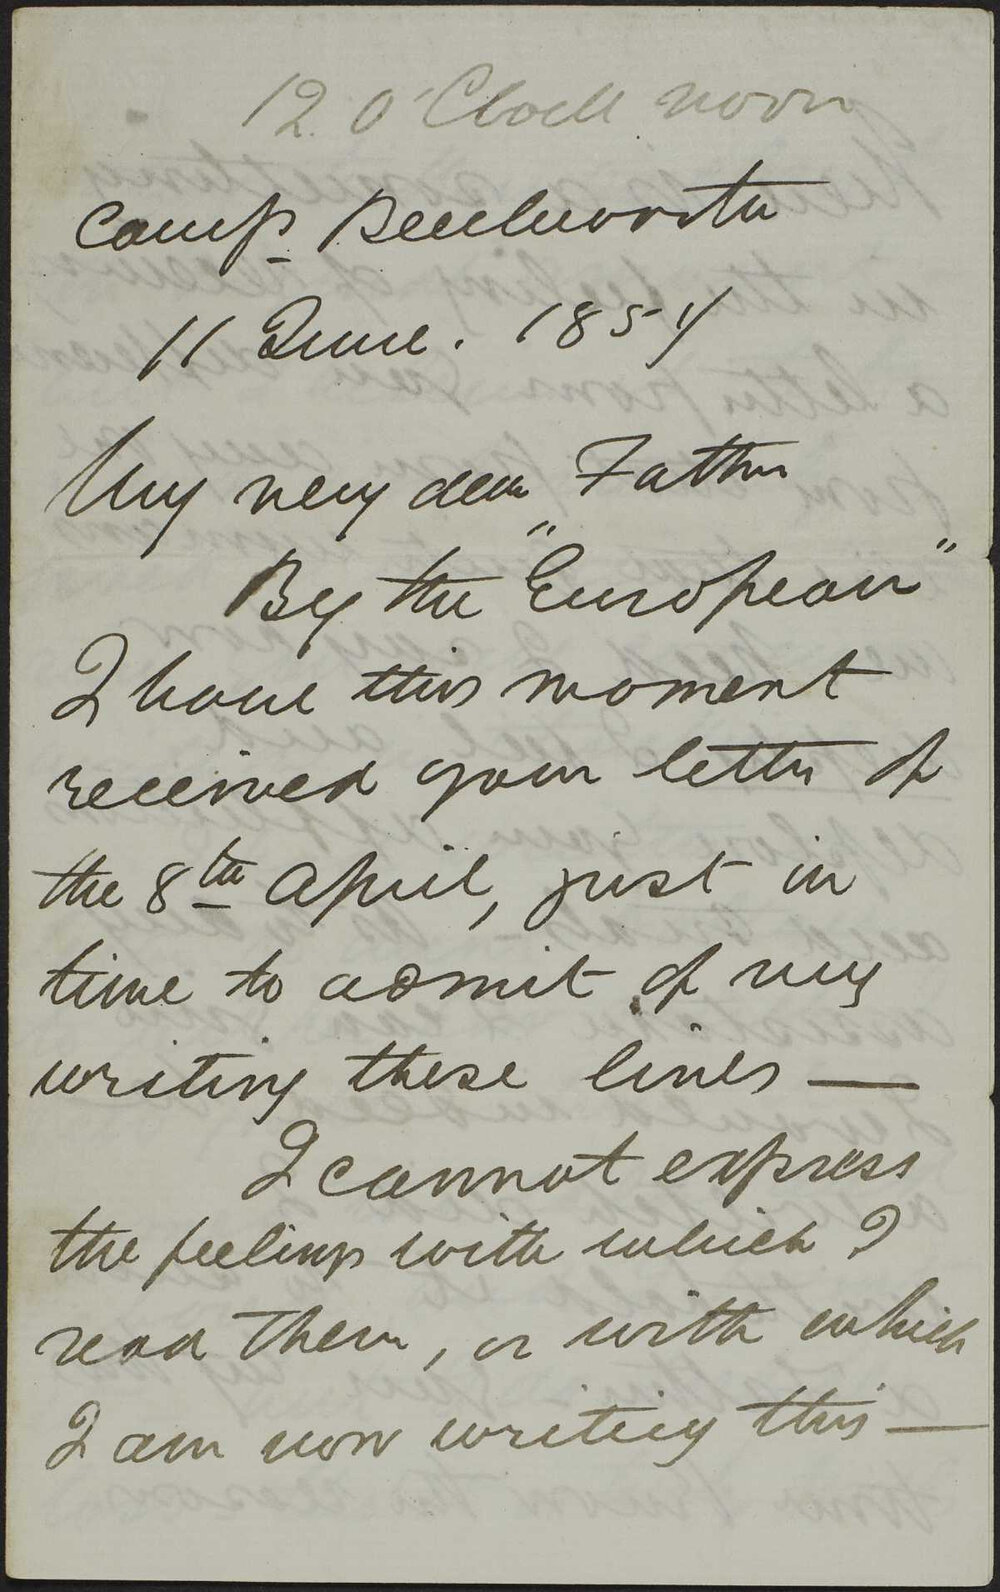 12 O'Clock noon
Camp Beechworth
11 June. 1854
My very dear Father
By the "European"
I have this moment
received your letter of
the 8th April, just in
time to admit of my
writing these lines —
I cannot express
the feelings with which I
read them, or with which
I am now writing this —